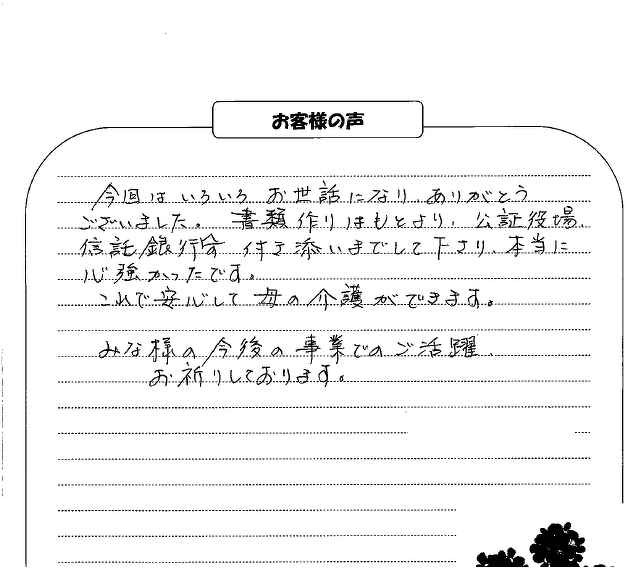 お客様の声
今回はいろいろお世話になり、ありがとう
ございました。書類作りはもとより、公証役場、
信託銀行等付き添いまでして下さり、本当に
心強かったです。
これで安心して母の介護ができます。
みな様の今後の事業でのご活躍、
お祈りしております。